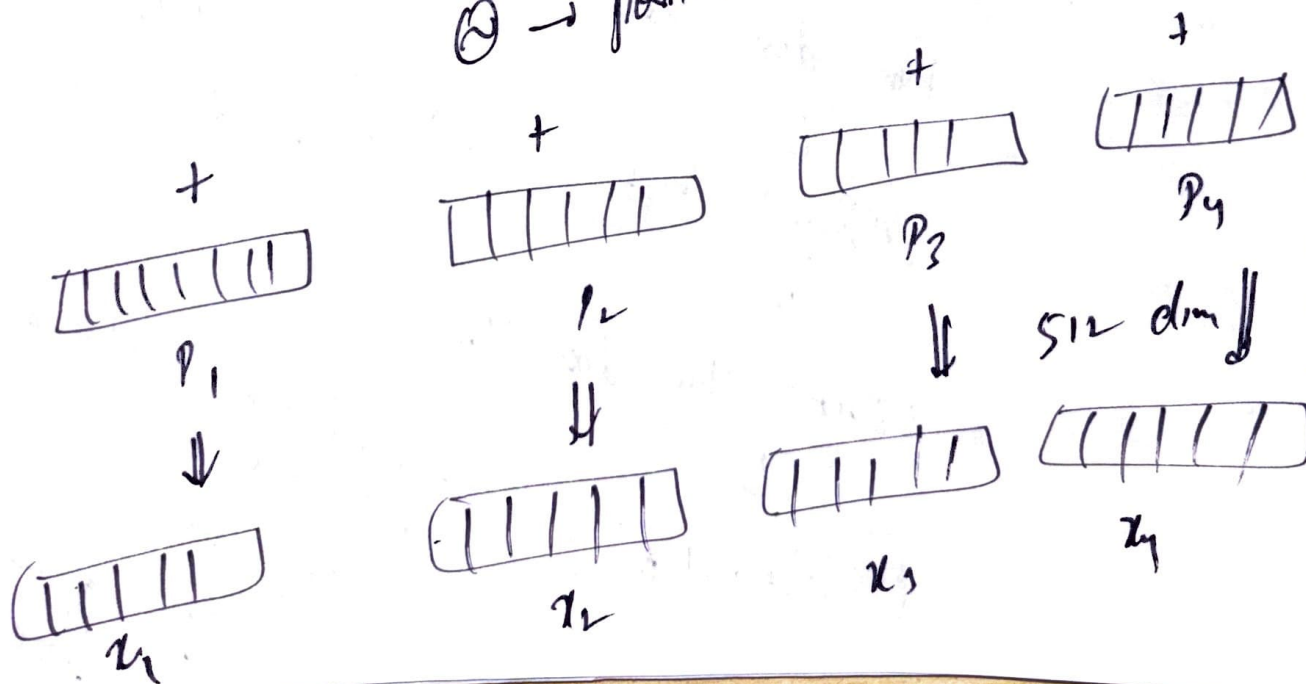 + + + +
P1 P2 P3 P4
512 dim
x1 x2 x3 x4